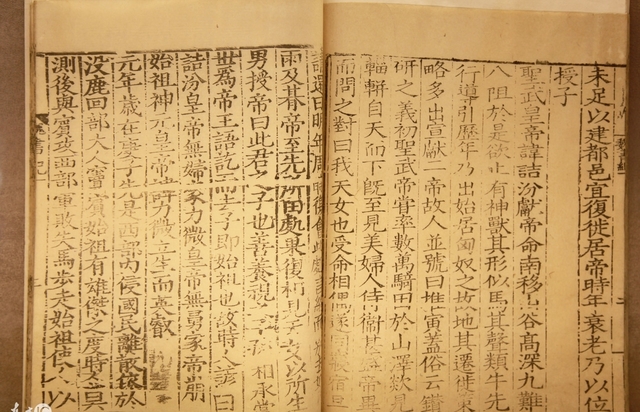 未足以建都邑宜復徙居帝時年衰老乃以位
授子
聖武皇帝諱詰汾獻帝命南移山谷高深九難
八阻於是欲止有神獸其形似馬其聲類牛先
行導引歷年乃出始居匈奴之故地其遷徙策
略多出宣獻二帝故人並號曰推寅蓋俗云鑽
研之義初聖武帝嘗率數萬騎田於山澤欻
輜軿自天而下既至見美婦人侍衛甚
而問之對曰我天女也受命相偶遂同寢宿旦
請還曰明年周時復會此處言終而
雨及朞帝至先所田處果復相見天女以所生
男授帝曰此君之子也善養視之子孫相承當
世為帝王語訖而去子即始祖也故時人諺曰
詰汾皇帝無婦家力微皇帝無舅家帝崩
始祖神元皇帝諱力微立生而英叡
元年歲在庚子先是西部內侵國民離散依於
沒鹿回部大人竇賓始祖有雄傑之度時人莫
測後與賓攻西部軍敗失馬步走始祖使人以
魏書紀